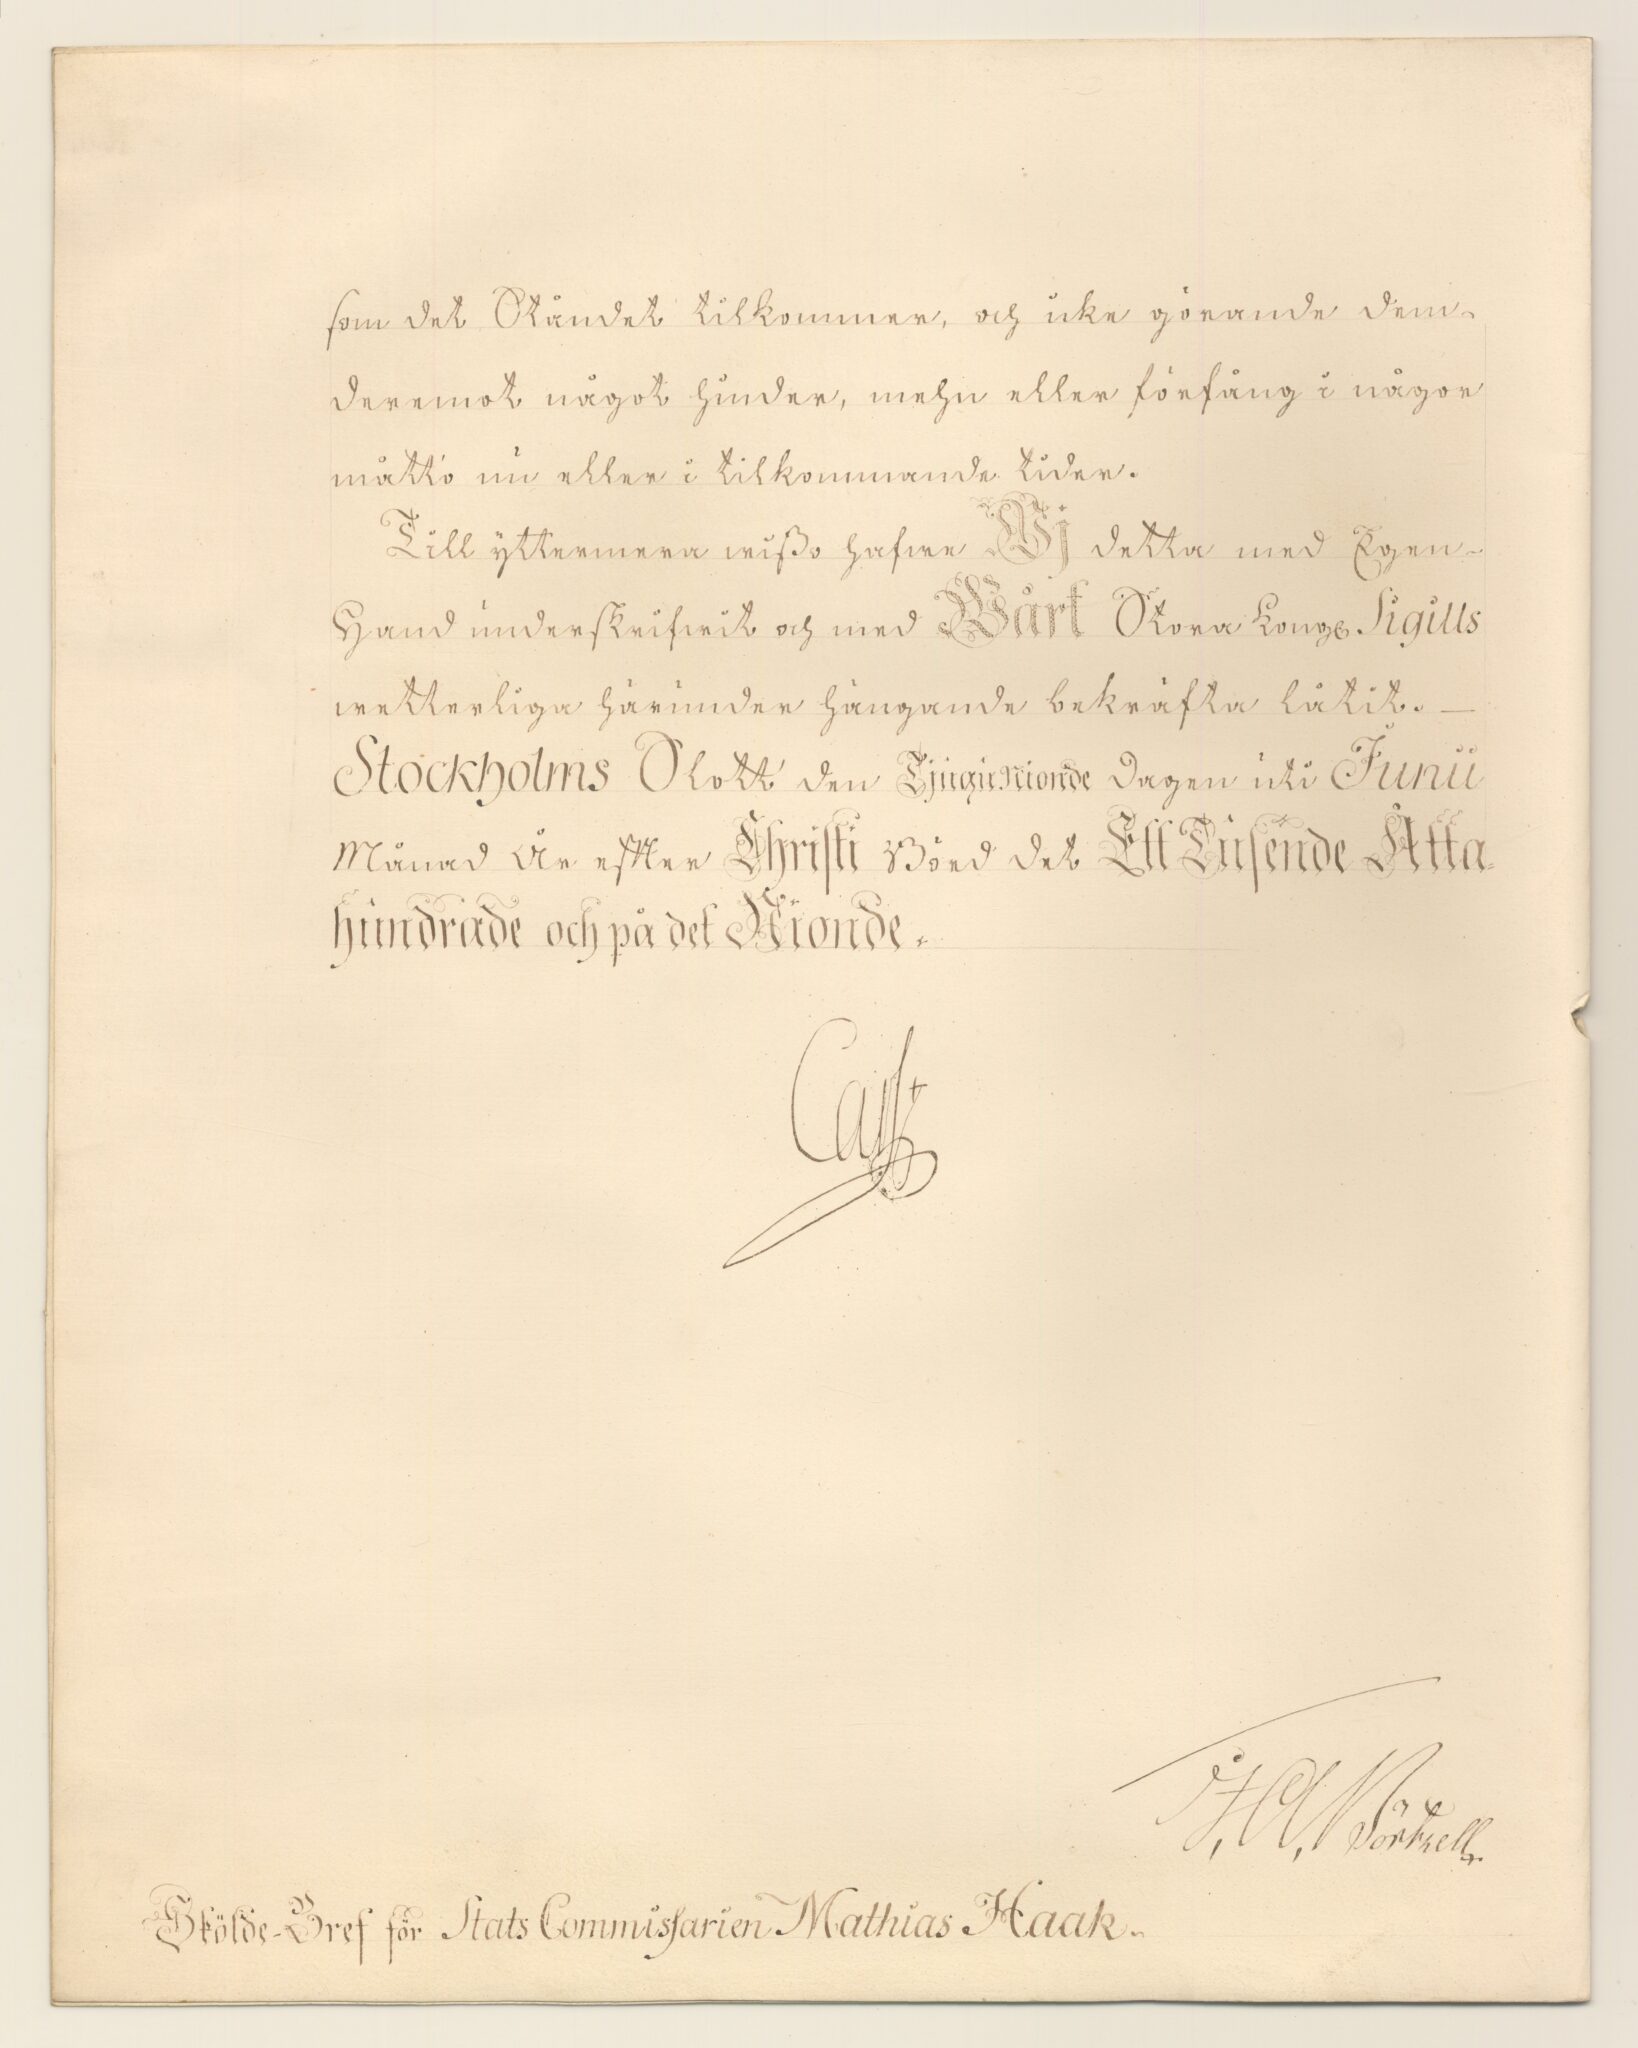 som det Ståndet tilkommer, och icke görande dem
deremot något hinder, mehn eller förfång i någor
måtto nu eller i tilkommande tider.
Till yttermera wißo hafwe Wj detta med Egen
Hand underskrifwit och med Wårt Stora Kongs Sigills
wetterliga härunder hängande bekräfta låtit. —
Stockholms Slott den Tjugu Nionde Dagen uti Junii
Månad År efter Christi Börd det Ett Tusende Åtta
hundrade och på det Nionde.
Carl
Skölde-Bref för Stats Commissarien Mathias Haak.